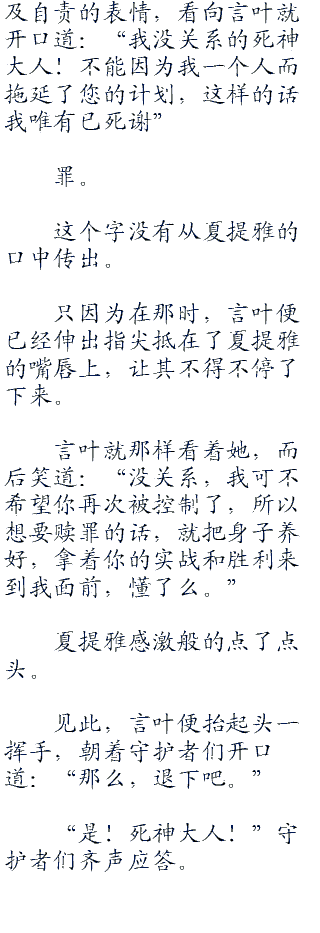 及自责的表情，看向言叶就
开口道：“我没关系的死神
大人！不能因为我一个人而
拖延了您的计划，这样的话
我唯有已死谢”
罪。
这个字没有从夏提雅的
口中传出。
只因为在那时，言叶便
已经伸出指尖抵在了夏提雅
的嘴唇上，让其不得不停了
下来。
言叶就那样看着她，而
后笑道：“没关系，我可不
希望你再次被控制了，所以
想要赎罪的话，就把身子养
好，拿着你的实战和胜利来
到我面前，懂了么。”
夏提雅感激般的点了点
头。
见此，言叶便抬起头一
挥手，朝着守护者们开口
道：“那么，退下吧。”
“是！死神大人！”守
护者们齐声应答。